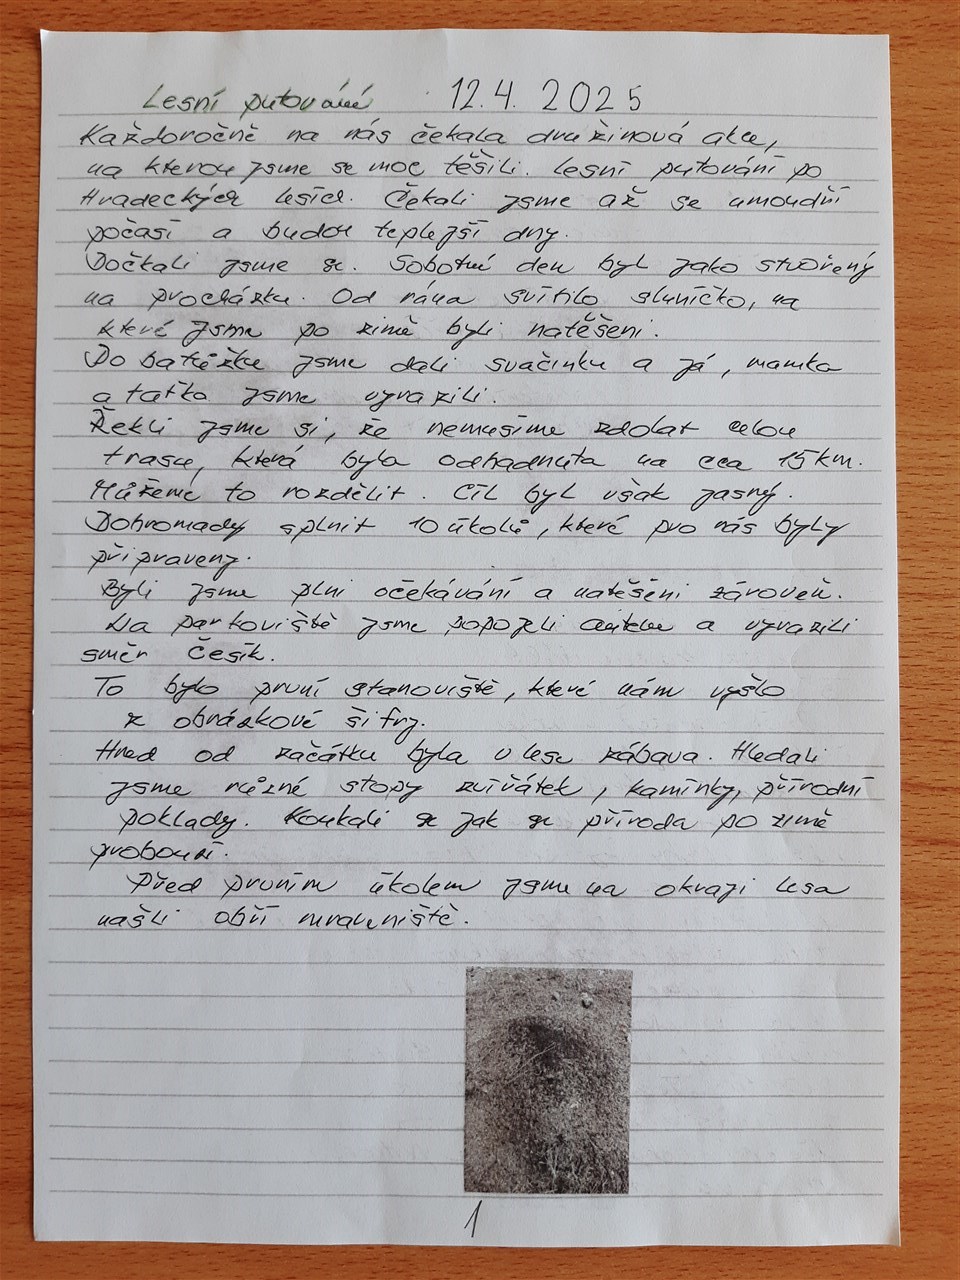 Lesní putování 12.4. 2025
Každoročně na nás čekala družinová akce,
na kterou jsme se moc těšili. Lesní putování po
Hradeckých lesích. Čekali jsme až se umoudří
počasí a budou teplejší dny.
Dočkali jsme se. Sobotní den byl jako stvořený
na procházku. Od rána svítilo sluníčko, na
které jsme po zimě byli natěšeni.
Do batůžku jsme dali svačinku a já, mamka
a taťka jsme vyrazili.
Řekli jsme si, že nemusíme zdolat celou
trasu, která byla odhadnuta na cca 15 km.
Můžeme to rozdělit. Cíl byl však jasný.
Dohromady splnit 10 úkolů, které pro nás byly
připraveny.
Byli jsme plni očekávání a natěšeni zároveň.
Na parkoviště jsme popojeli autem a vyrazili
směr Češík.
To bylo první stanoviště, které nám vyšlo
z obrázkové šifry.
Hned od začátku byla v lese zábava. Hledali
jsme různé stopy zvířátek, kamínky, přírodní
poklady. Koukali se jak se příroda po zimě
probouzí.
Před prvním úkolem jsme na okraji lesa
našli obří mraveniště.
1